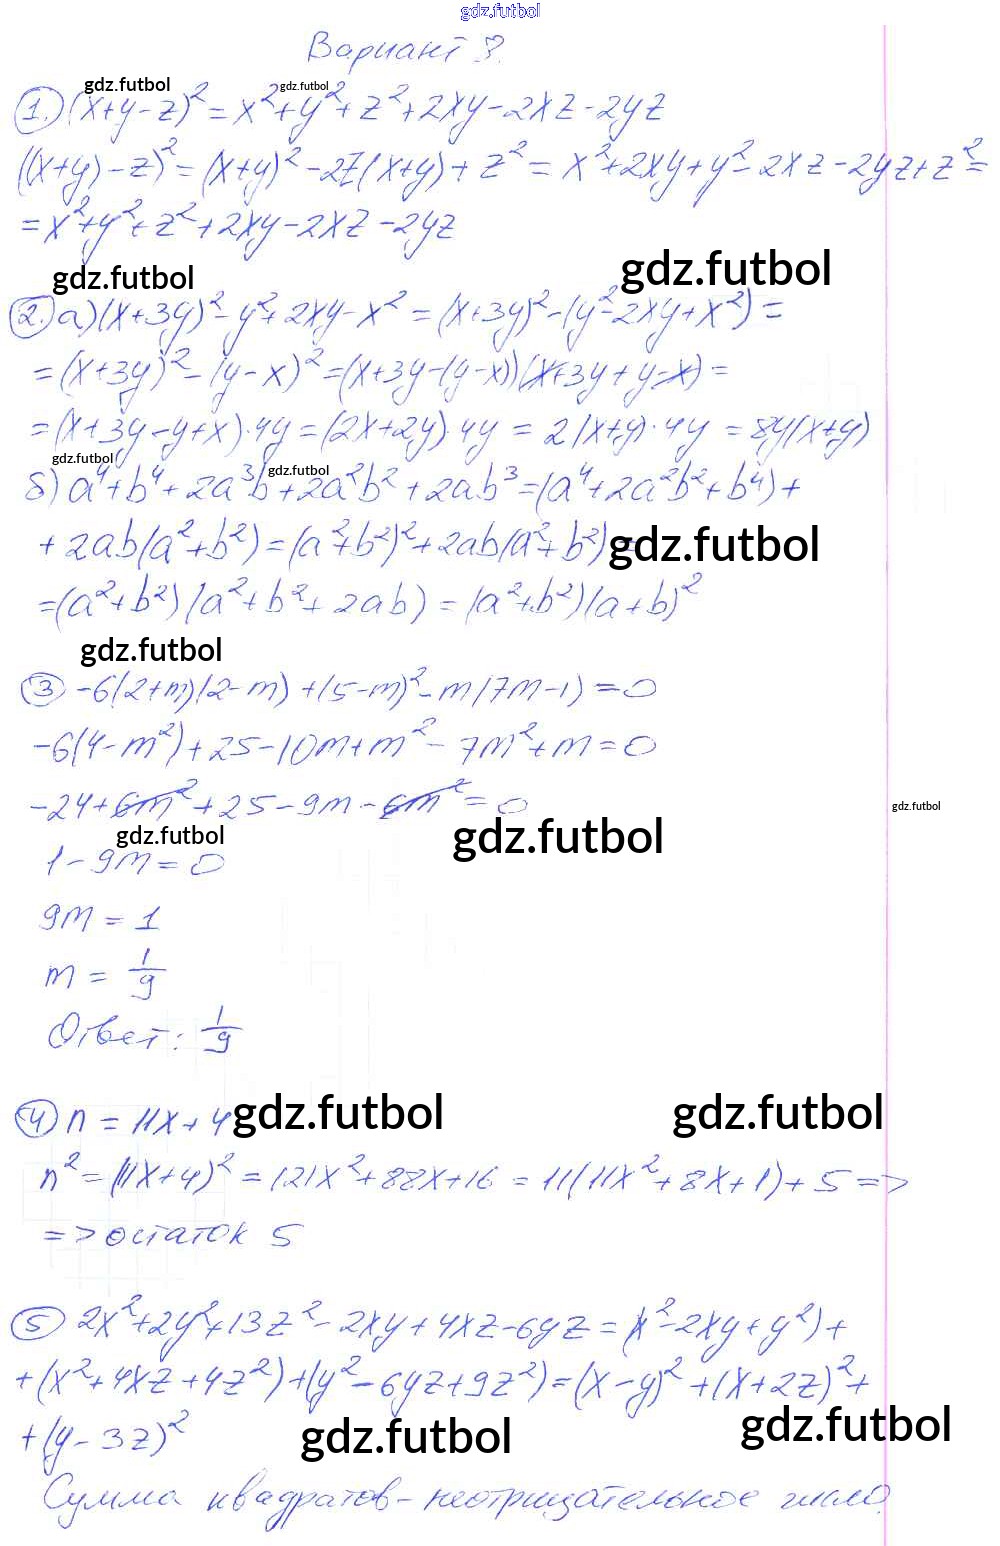 gdz.futbol
Вариант 3.
gdz.futbol gdz.futbol
1. (x+y-z)² = x²+y²+z²+2xy-2xz-2yz
((x+y)-z)² = (x+y)²-2z(x+y)+z² = x²+2xy+y²-2xz-2yz+z² =
= x²+y²+z²+2xy-2xz-2yz
gdz.futbol gdz.futbol
2. а) (x+3y)²-y²+2xy-x² = (x+3y)²-(y²-2xy+x²) =
= (x+3y)²-(y-x)² = (x+3y-(y-x))(x+3y+y-x) =
= (x+3y-y+x)·4y = (2x+2y)·4y = 2(x+y)·4y = 8y(x+y)
gdz.futbol gdz.futbol
б) a⁴+b⁴+2a³b+2a²b²+2ab³ = (a⁴+2a²b²+b⁴)+
+2ab(a²+b²) = (a²+b²)²+2ab(a²+b²) =
gdz.futbol
= (a²+b²)(a²+b²+2ab) = (a²+b²)(a+b)²
gdz.futbol
3 -6(2+m)(2-m)+(5-m)²-m(7m-1) = 0
-6(4-m²)+25-10m+m²-7m²+m = 0
-24+6m²+25-9m-6m² = 0
gdz.futbol
gdz.futbol gdz.futbol
1-9m = 0
9m = 1
m = 1/9
Ответ: 1/9
4 n = 11x+4 gdz.futbol gdz.futbol
n² = (11x+4)² = 121x²+88x+16 = 11(11x²+8x+1)+5 =>
=> остаток 5
5 2x²+2y²+13z²-2xy+4xz-6yz = (x²-2xy+y²)+
+(x²+4xz+4z²)+(y²-6yz+9z²) = (x-y)²+(x+2z)²+
+(y-3z)² gdz.futbol gdz.futbol
Сумма квадратов - неотрицательное число.